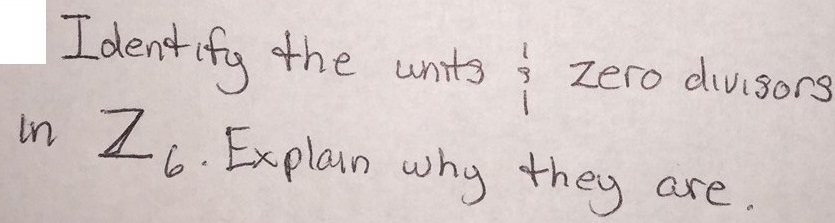 Identify the units & zero divisors
in Z₆. Explain why they are.